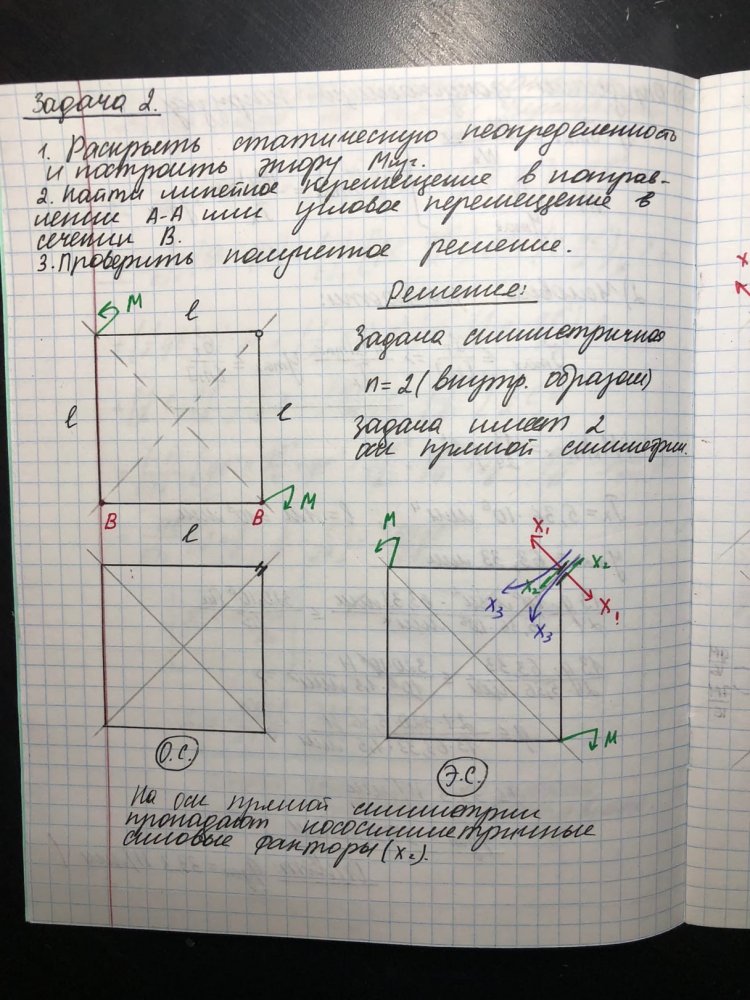 Задача 2.
1. Раскрыть статическую неопределенность
и построить эпюру Mизг.
2. Найти линейное перемещение в направ-
лении А-А или угловое перемещение в
сечении В.
3. Проверить полученное решение.
Решение:
M
l
Задача симметричная
n=2 (внутр. образом)
l
l
Задача имеет 2
оси прямой симметрии.
B
B
M
l
M
X₁
X₂
X₂
X₃
X₁
X₃
M
О.С.
Э.С.
На оси прямой симметрии
пропадают кососимметричные
силовые факторы (X₂).